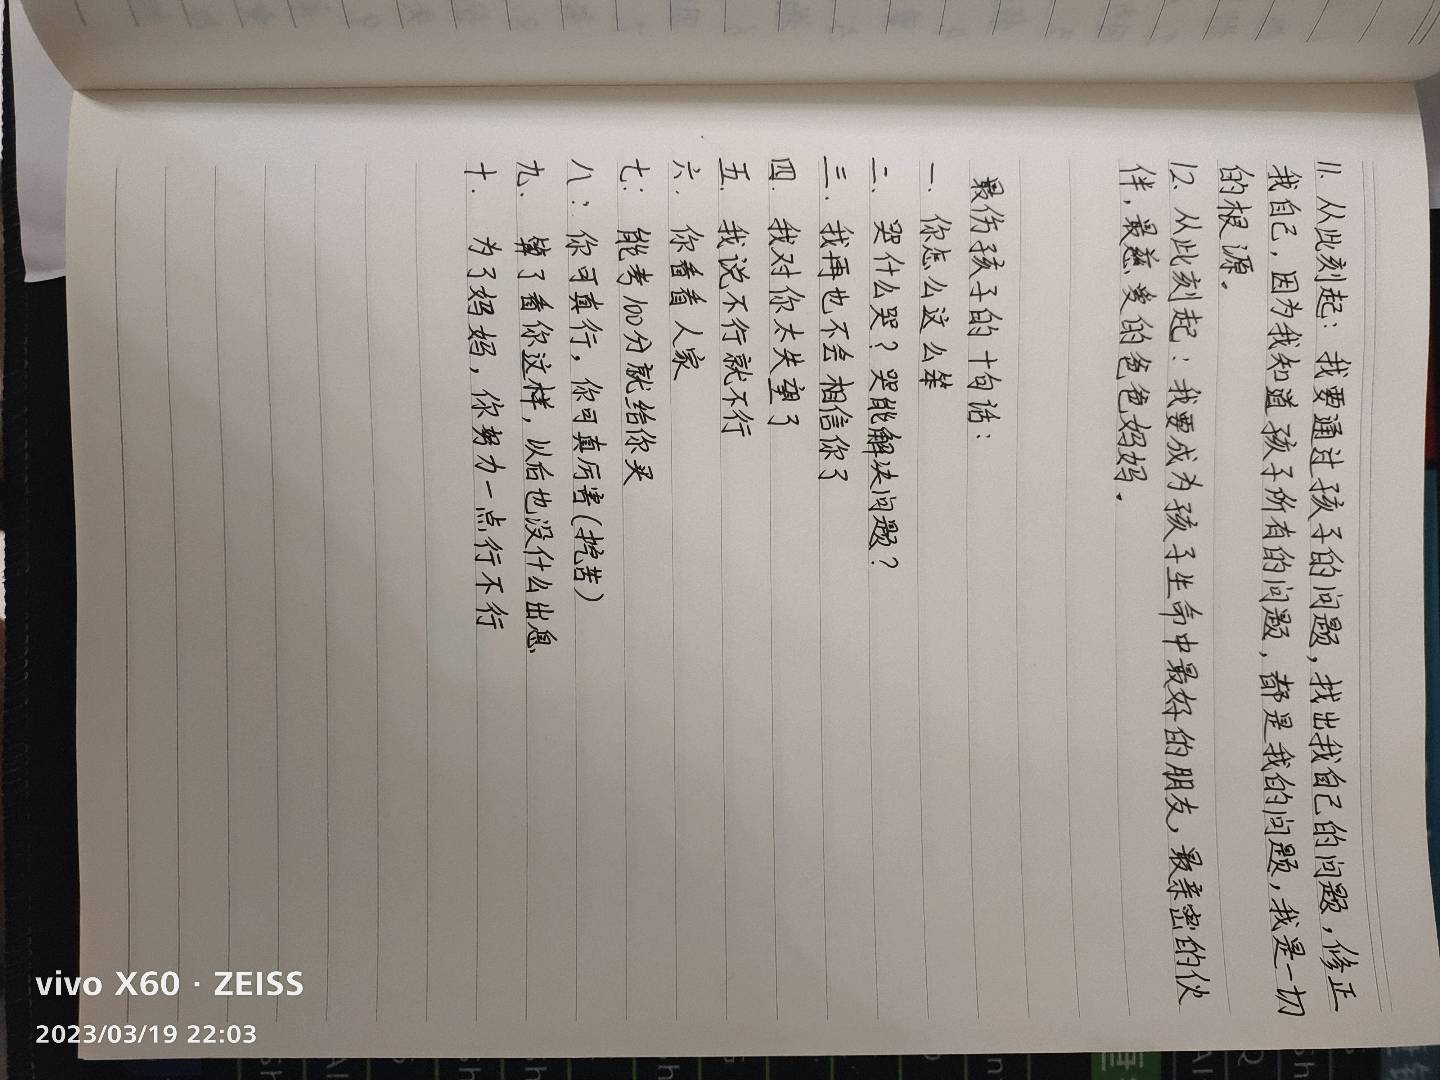 11. 从此刻起：我要通过孩子的问题，找出我自己的问题，修正
我自己，因为我知道孩子所有的问题，都是我的问题，我是一切
的根源。
12. 从此刻起：我要成为孩子生命中最好的朋友，最亲密的伙
伴，最慈爱的爸爸妈妈。
最伤孩子的十句话：
一. 你怎么这么笨
二. 哭什么哭？哭能解决问题？
三. 我再也不会相信你了
四. 我对你太失望了
五. 我说不行就不行
六. 你看看人家
七: 能考100分就给你买
八: 你可真行，你可真厉害(挖苦)
九. 算了看你这样，以后也没什么出息
十. 为了妈妈，你努力一点行不行
vivo X60 · ZEISS
2023/03/19 22:03